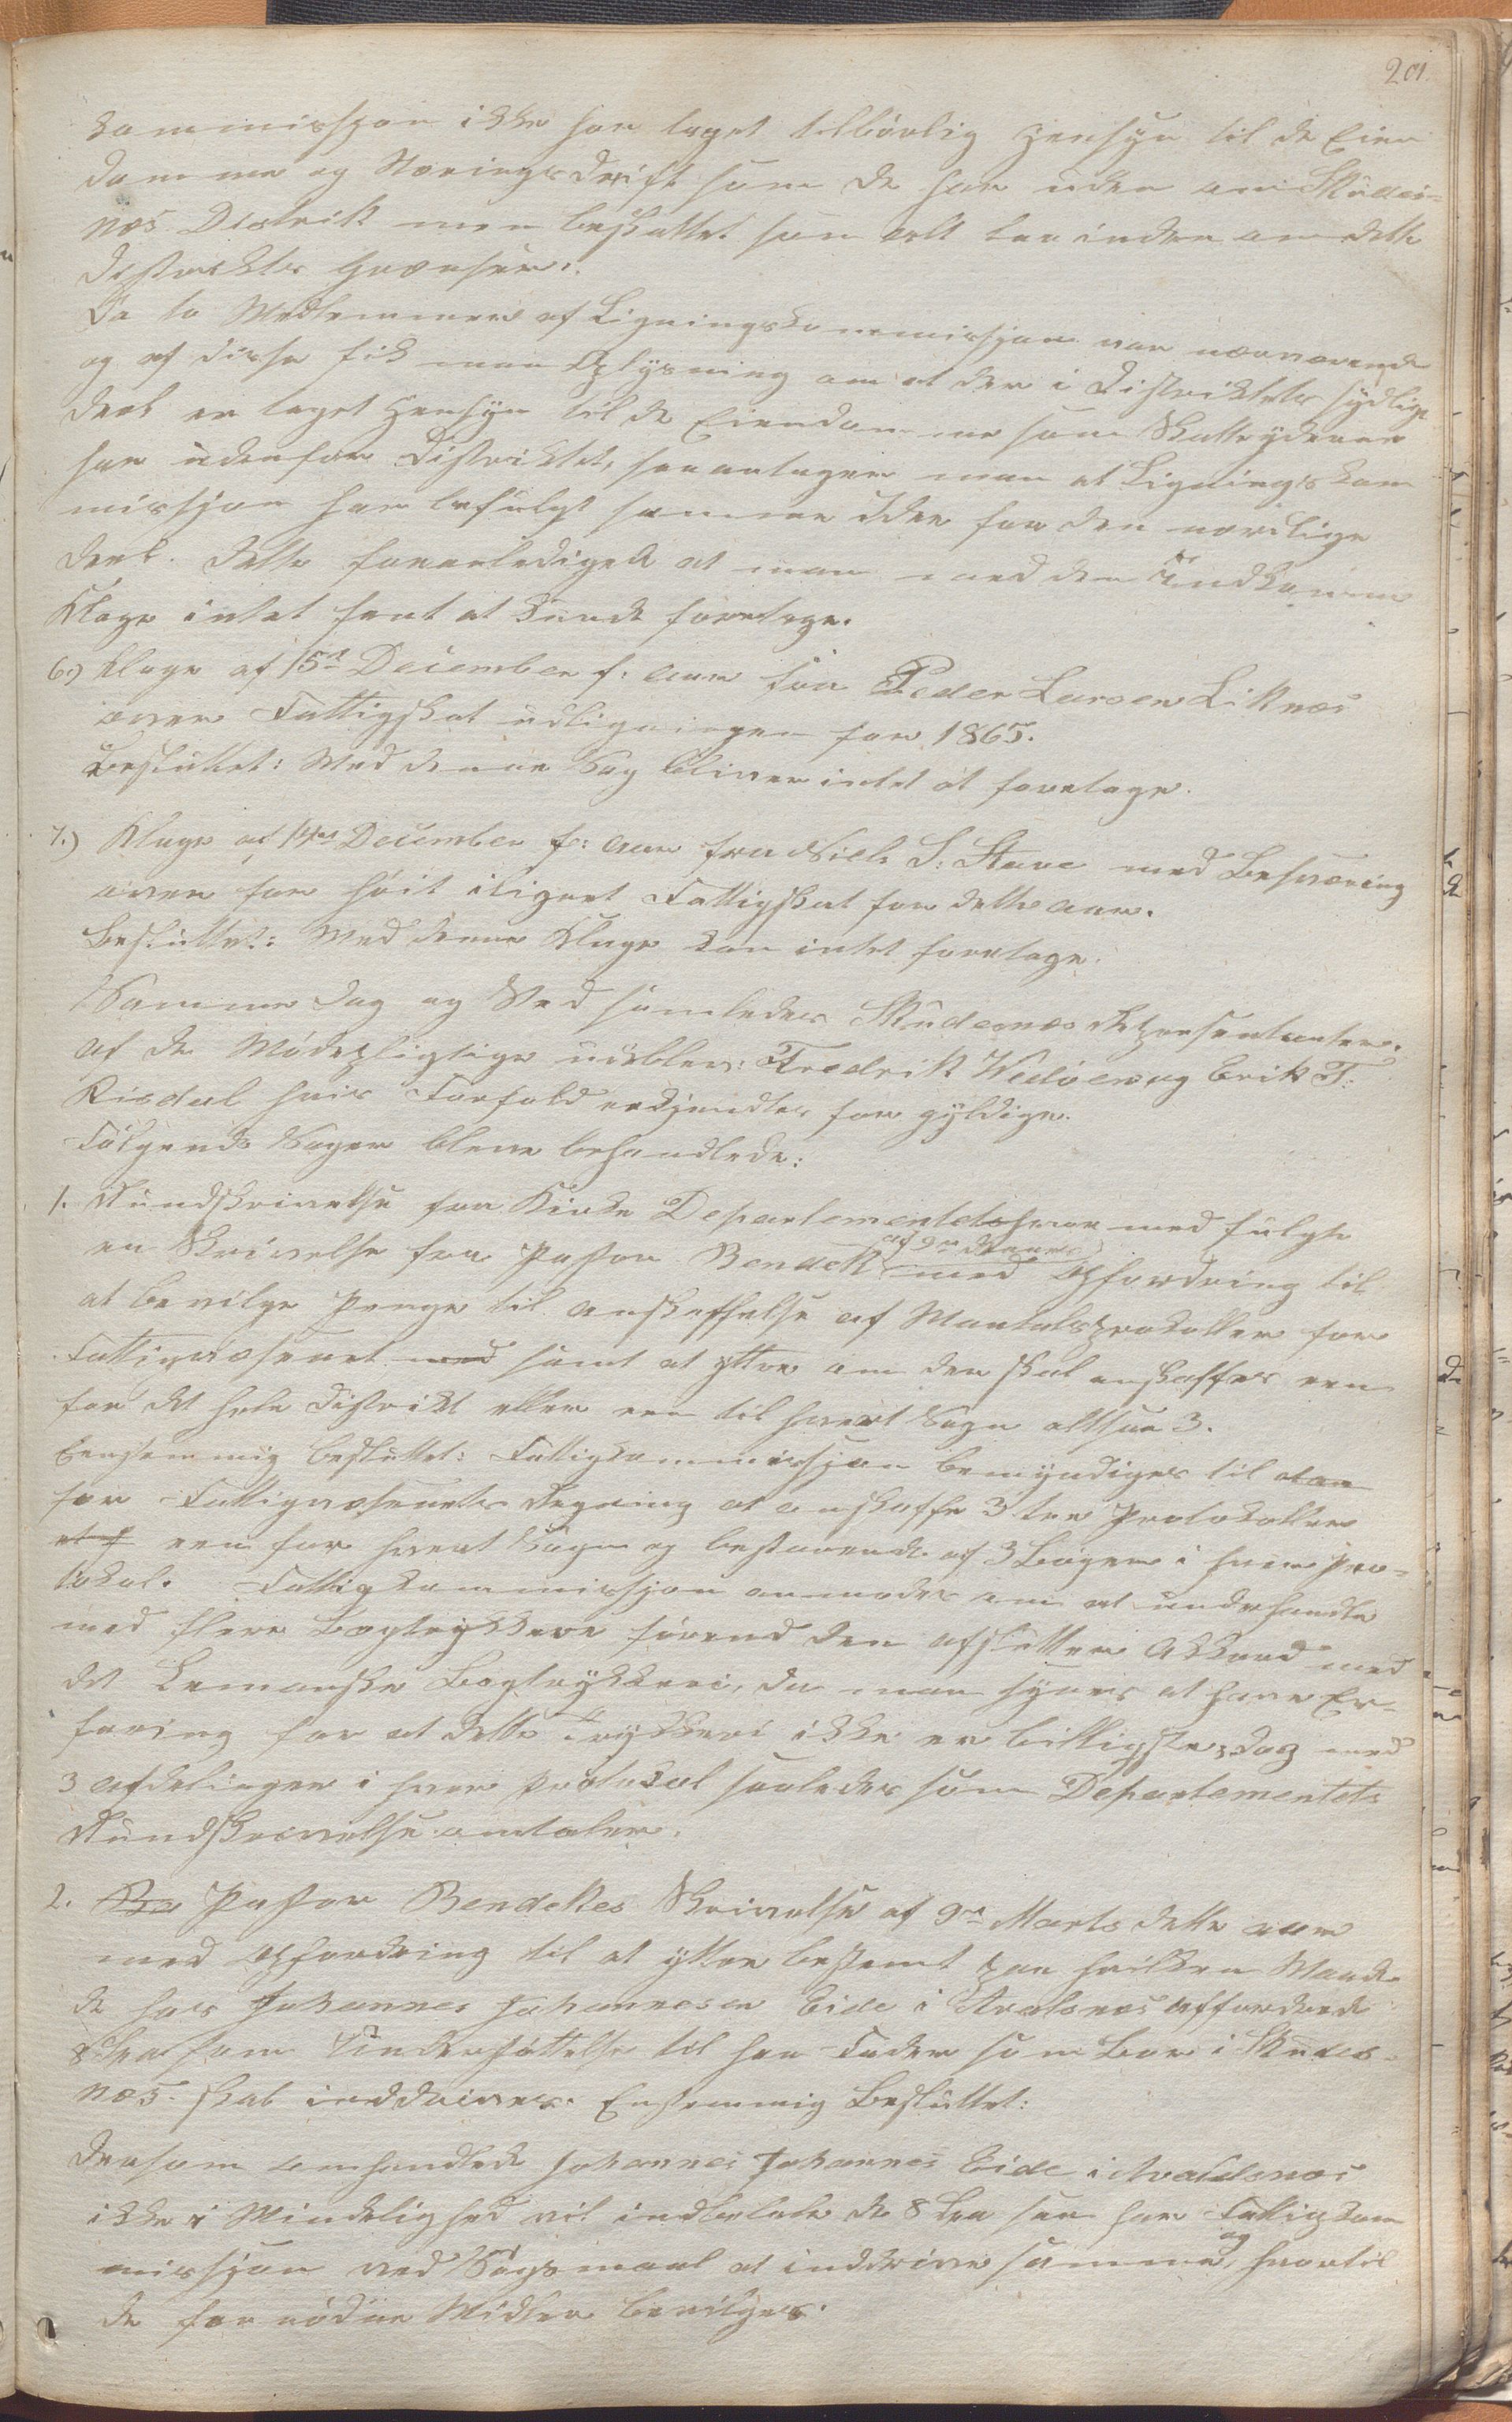 201.
kommissjon ikke har taget tilbørlig Hensyn til de Eien
domme og Næringsdrift som de har uden om Skudes-
næs Distrikt men beskattet som alt laa inden om dette
Distrikts Grændser.
Da to Medlemmer af Ligningskommissjon var nærværende
og af disse fik man Oplysning om at der i Distriktets sydlige
Deel er taget Hensyn til de Eiendomme som Skatteyderne
har udenfor Distriktet, saa antager man at Ligningskom
missjon har befulgt samme Idee for den nordlige
Deel. Dette foranlediged at man med den indkomne
Klage intet fant at kunde foretage.
6.) Klage af 15de December f: Aar fra Peder Larsen Liknæs
over Fattigskat udligningen for 1865.
Besluttet: Med denne Sag bliver intet at foretage.
7.) Klage af 14de December f: Aar fra Niels S: Stave med Besværing
over for høit ilignet Fattigskat for dette Aar.
Besluttet: Med denne Klage kan intet foretage.
Samme Dag og Sted samledes Skudesnæs Repræsentanter.
af de Mødepligtige udeblev: Fredrik Wedøen og Erik T:
Risdal hvis Forfald erkjendtes for gyldige.
Følgende Sager bleve behandlede:
1. Rundskrivelse fra Kirke Departementet hvor med fulgte
af 9de Marts
en Skrivelse fra Pastor Bendeke med Opfordring til
at bevilge Penge til Anskaffelse af Mantalsprotokoller for
Fattigvæsenet med samt at yttre om der skal anskaffes een
for det hele Distrikt eller een til hvert Sogn altsaa 3.
Eenstemmig besluttet: Fattigkommissjon bemyndiges til at an
for Fattigvæsenets Regning at anskaffe 3 tre Protokoller
een for hvert Sogn og bestaaende af 3 Bøger i hver Pro-
tokol. Fattigkommissjon anmodes om at underhandle
med flere Bogtrykkere førend den afslutter Akkord med
det Lemanske Bogtrykkeri, da man synes at have Er-
faring for at dette Trykkeri ikke er billigste, dog med
3 Afdelinger i hver Protokol saaledes som Departementets
Rundskrivelse omtaler.
2. Pastor Bendekes Skrivelse af 9de Marts dette Aar
med Opfordring til at yttre bestemt paa hvilken Maade
de hos Johannes Johannesen Eide i Avalsnæs affordrede
som Understøttelse til han Fader som Bor i Skudes-
næs skal inddrives. Enstemmig Besluttet:
Dersom omhandlede Johannes Johannes Eide i Avaldsnæs
ikke i Mindelighed vil indbetale de 8 saa har Fattigkom
missjon ved Søgsmaal at inddrive samme, og hvortil
de for nødne Midler bevilges.